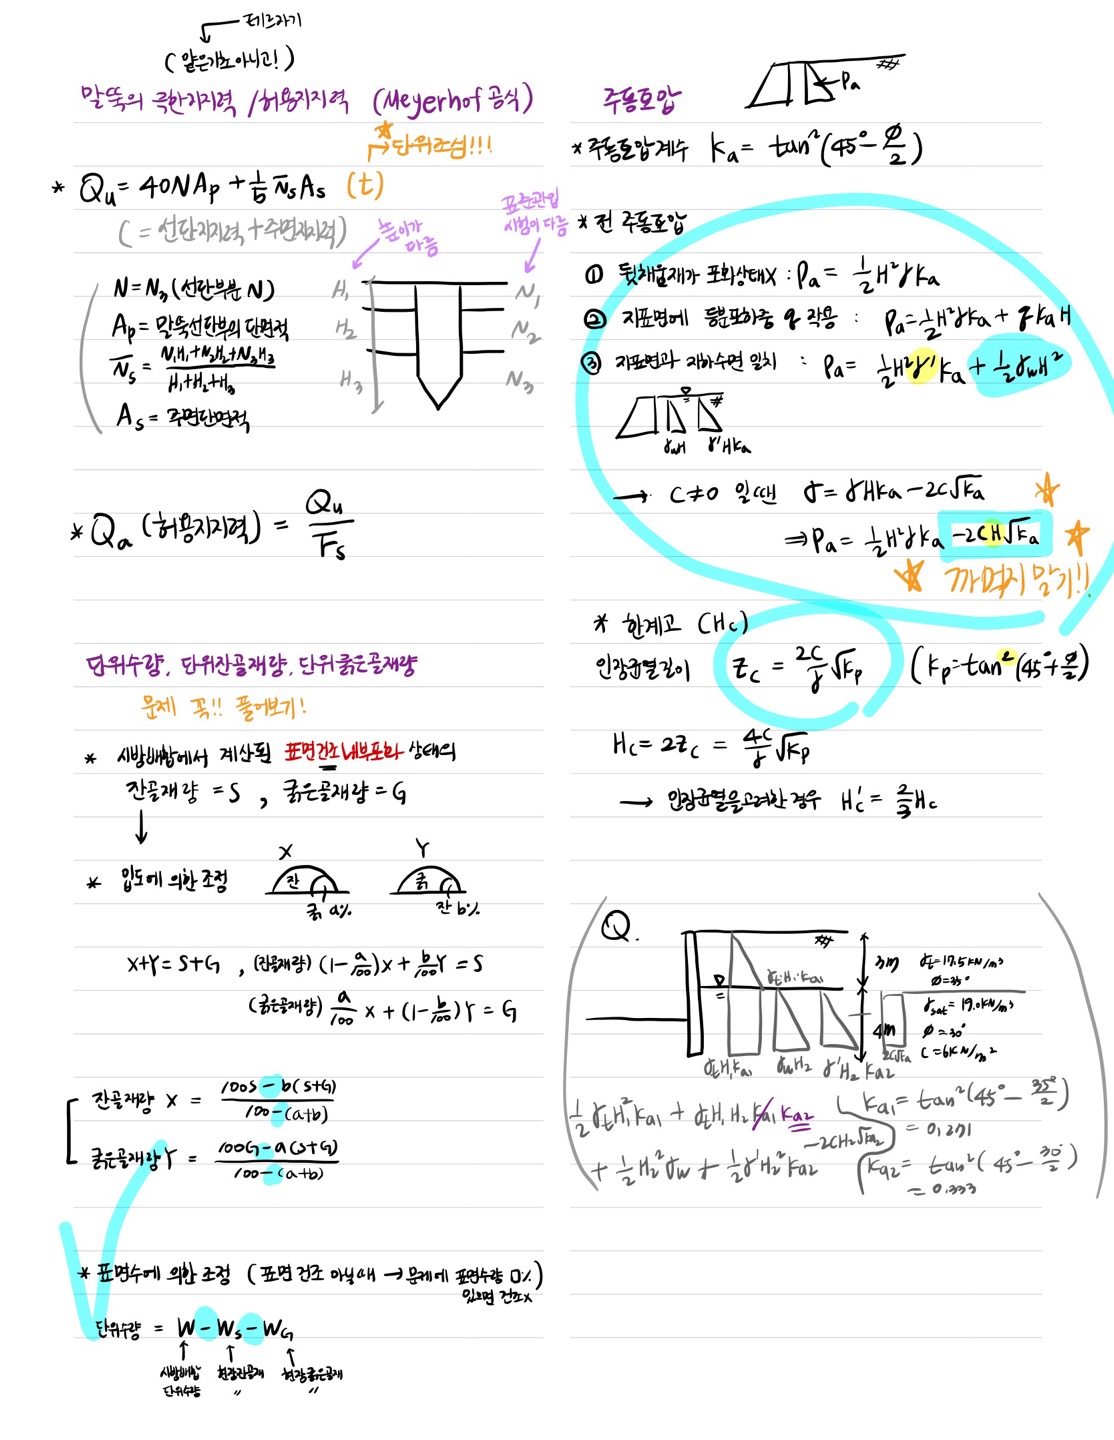 테르자기
(얕은기초아니고!)
말뚝의 극한지지력 /허용지지력 (Meyerhof 공식)
→단위조심!!!
* Qu = 40NAp + 1/5 N̅sAs (t)
(= 선단지지력 + 주면지지력)
높이가 다름
표준관입 시험이 다름
N = N₃ (선단부분 N)
Ap = 말뚝선단부의 단면적
N̅s = (N₁H₁+N₂H₂+N₃H₃)/(H₁+H₂+H₃)
As = 주면단면적
H₁ N₁
H₂ N₂
H₃ N₃
* Qa (허용지지력) = Qu/Fs
단위수량, 단위잔골재량, 단위굵은골재량
문제 꼭!! 풀어보기!
* 시방배합에서 계산된 표면건조내부포화 상태의
잔골재량 = S , 굵은골재량 = G
* 입도에 의한 조정
X Y
잔 굵
굵 a% 잔 b%
X+Y = S+G , (잔골재량) (1-a/100)X + b/100 Y = S
(굵은골재량) a/100 X + (1-b/100)Y = G
잔골재량 X = (100S-b(S+G))/(100-(a+b))
굵은골재량 Y = (100G-a(S+G))/(100-(a+b))
* 표면수에 의한 조정 (표면건조 아닐때 → 문제에 표면수량 □%)
있으면 건조x
단위수량 = W - Ws - WG
시방배합 단위수량
현장잔골재 〃
현장굵은골재 〃
주동토압
Pa
* 주동토압계수 Ka = tan²(45°-ø/2)
* 전 주동토압
① 뒷채움재가 포화상태X : Pa = 1/2 H²γKa
② 지표면에 등분포하중 q 작용 : Pa = 1/2 H²γKa + qKaH
③ 지표면과 지하수면 일치 : Pa = 1/2 H²γ'Ka + 1/2 γwH²
γwH γ'HKa
→ C≠0 일땐 σ = γHKa - 2C√Ka
⇒ Pa = 1/2 H²γKa - 2CH√Ka
까먹지 말기!!
* 한계고 (Hc)
인장균열깊이 Zc = 2C/γ √Kp (Kp = tan²(45°+ø/2)
Hc = 2Zc = 4C/γ √Kp
→ 인장균열을고려한 경우 Hc' = 2/3 Hc
Q.
3m γt = 17.5 KN/m³
ø = 35°
γtH₁Ka1
γsat = 19.0 KN/m³
4m ø = 30°
2C√Ka C = 6KN/m²
γtH₁Ka1 γwH₂ γ'H₂Ka2
1/2 γtH₁²Ka1 + γtH₁H₂Ka1 Ka2
-2CH₂√Ka2
+ 1/2 H₂²γw + 1/2 γ'H₂²Ka2
Ka1 = tan²(45° - 35°/2)
= 0.271
Ka2 = tan²(45° - 30°/2)
= 0.333